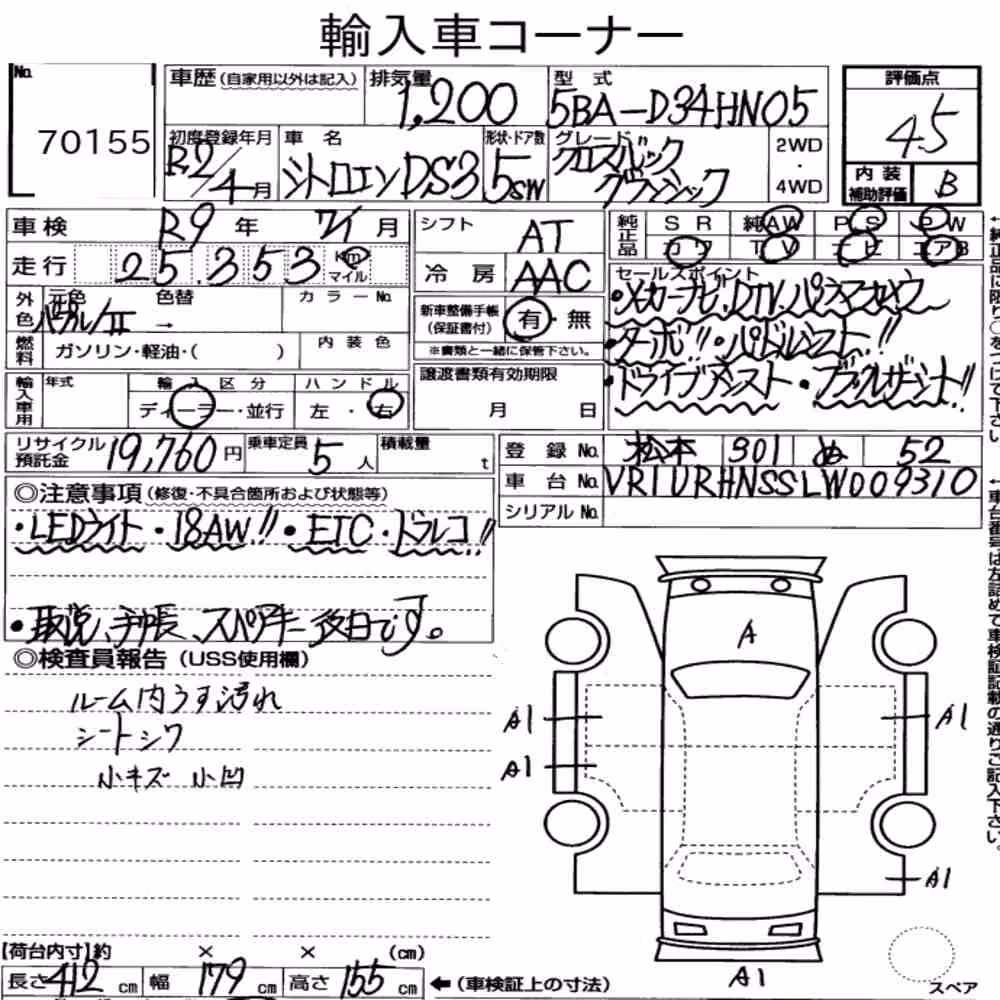 輸入車コーナー
No.
70155
車歴(自家用以外は記入)
排気量
1,200
型式
5BA-D34HN05
評価点
4.5
初度登録年月
R.2/4月
車名
シトロエンDS3
形状・ドア数
5SW
グレード
クロスバック
グランシック
2WD
・
4WD
内装
補助評価
B
車検
R9年 7/1月
走行
25,353
Km
マイル
シフト
AT
冷房
AAC
純正品
SR 純AW PS PW
カワ TV ナビ エアB
外色
元色
色替
カラーNo.
→
燃料
ガソリン・軽油・( )
内装色
新車整備手帳
(保証書付)
有・無
※書類と一緒に保管下さい。
セールスポイント
・メーカーナビ.DTV.パノラマカメラ
・ターボ!!・パドルシフト!!
・ドライブアシスト・
輸入車用
年式
輸入区分
ディーラー・並行
ハンドル
左・右
譲渡書類有効期限
月 日
リサイクル
預託金
19,760円
乗車定員
5人
積載量
t
登録No.
松本 301 ぬ 52
車台No.
VR1URHNSSLW009310
シリアルNo.
◎注意事項(修復・不具合箇所および状態等)
・LEDライト・18AW!!・ETC・ドラレコ!!
・取説、手帳、スペアキー後日です。
◎検査員報告(USS使用欄)
ルーム内うす汚れ
シートシワ
小キズ 小凹
A
A1
A1
A1
A1
A1
スペア
【荷台内寸】約 × × (cm)
長さ412cm 幅179cm 高さ155cm
←(車検証上の寸法)